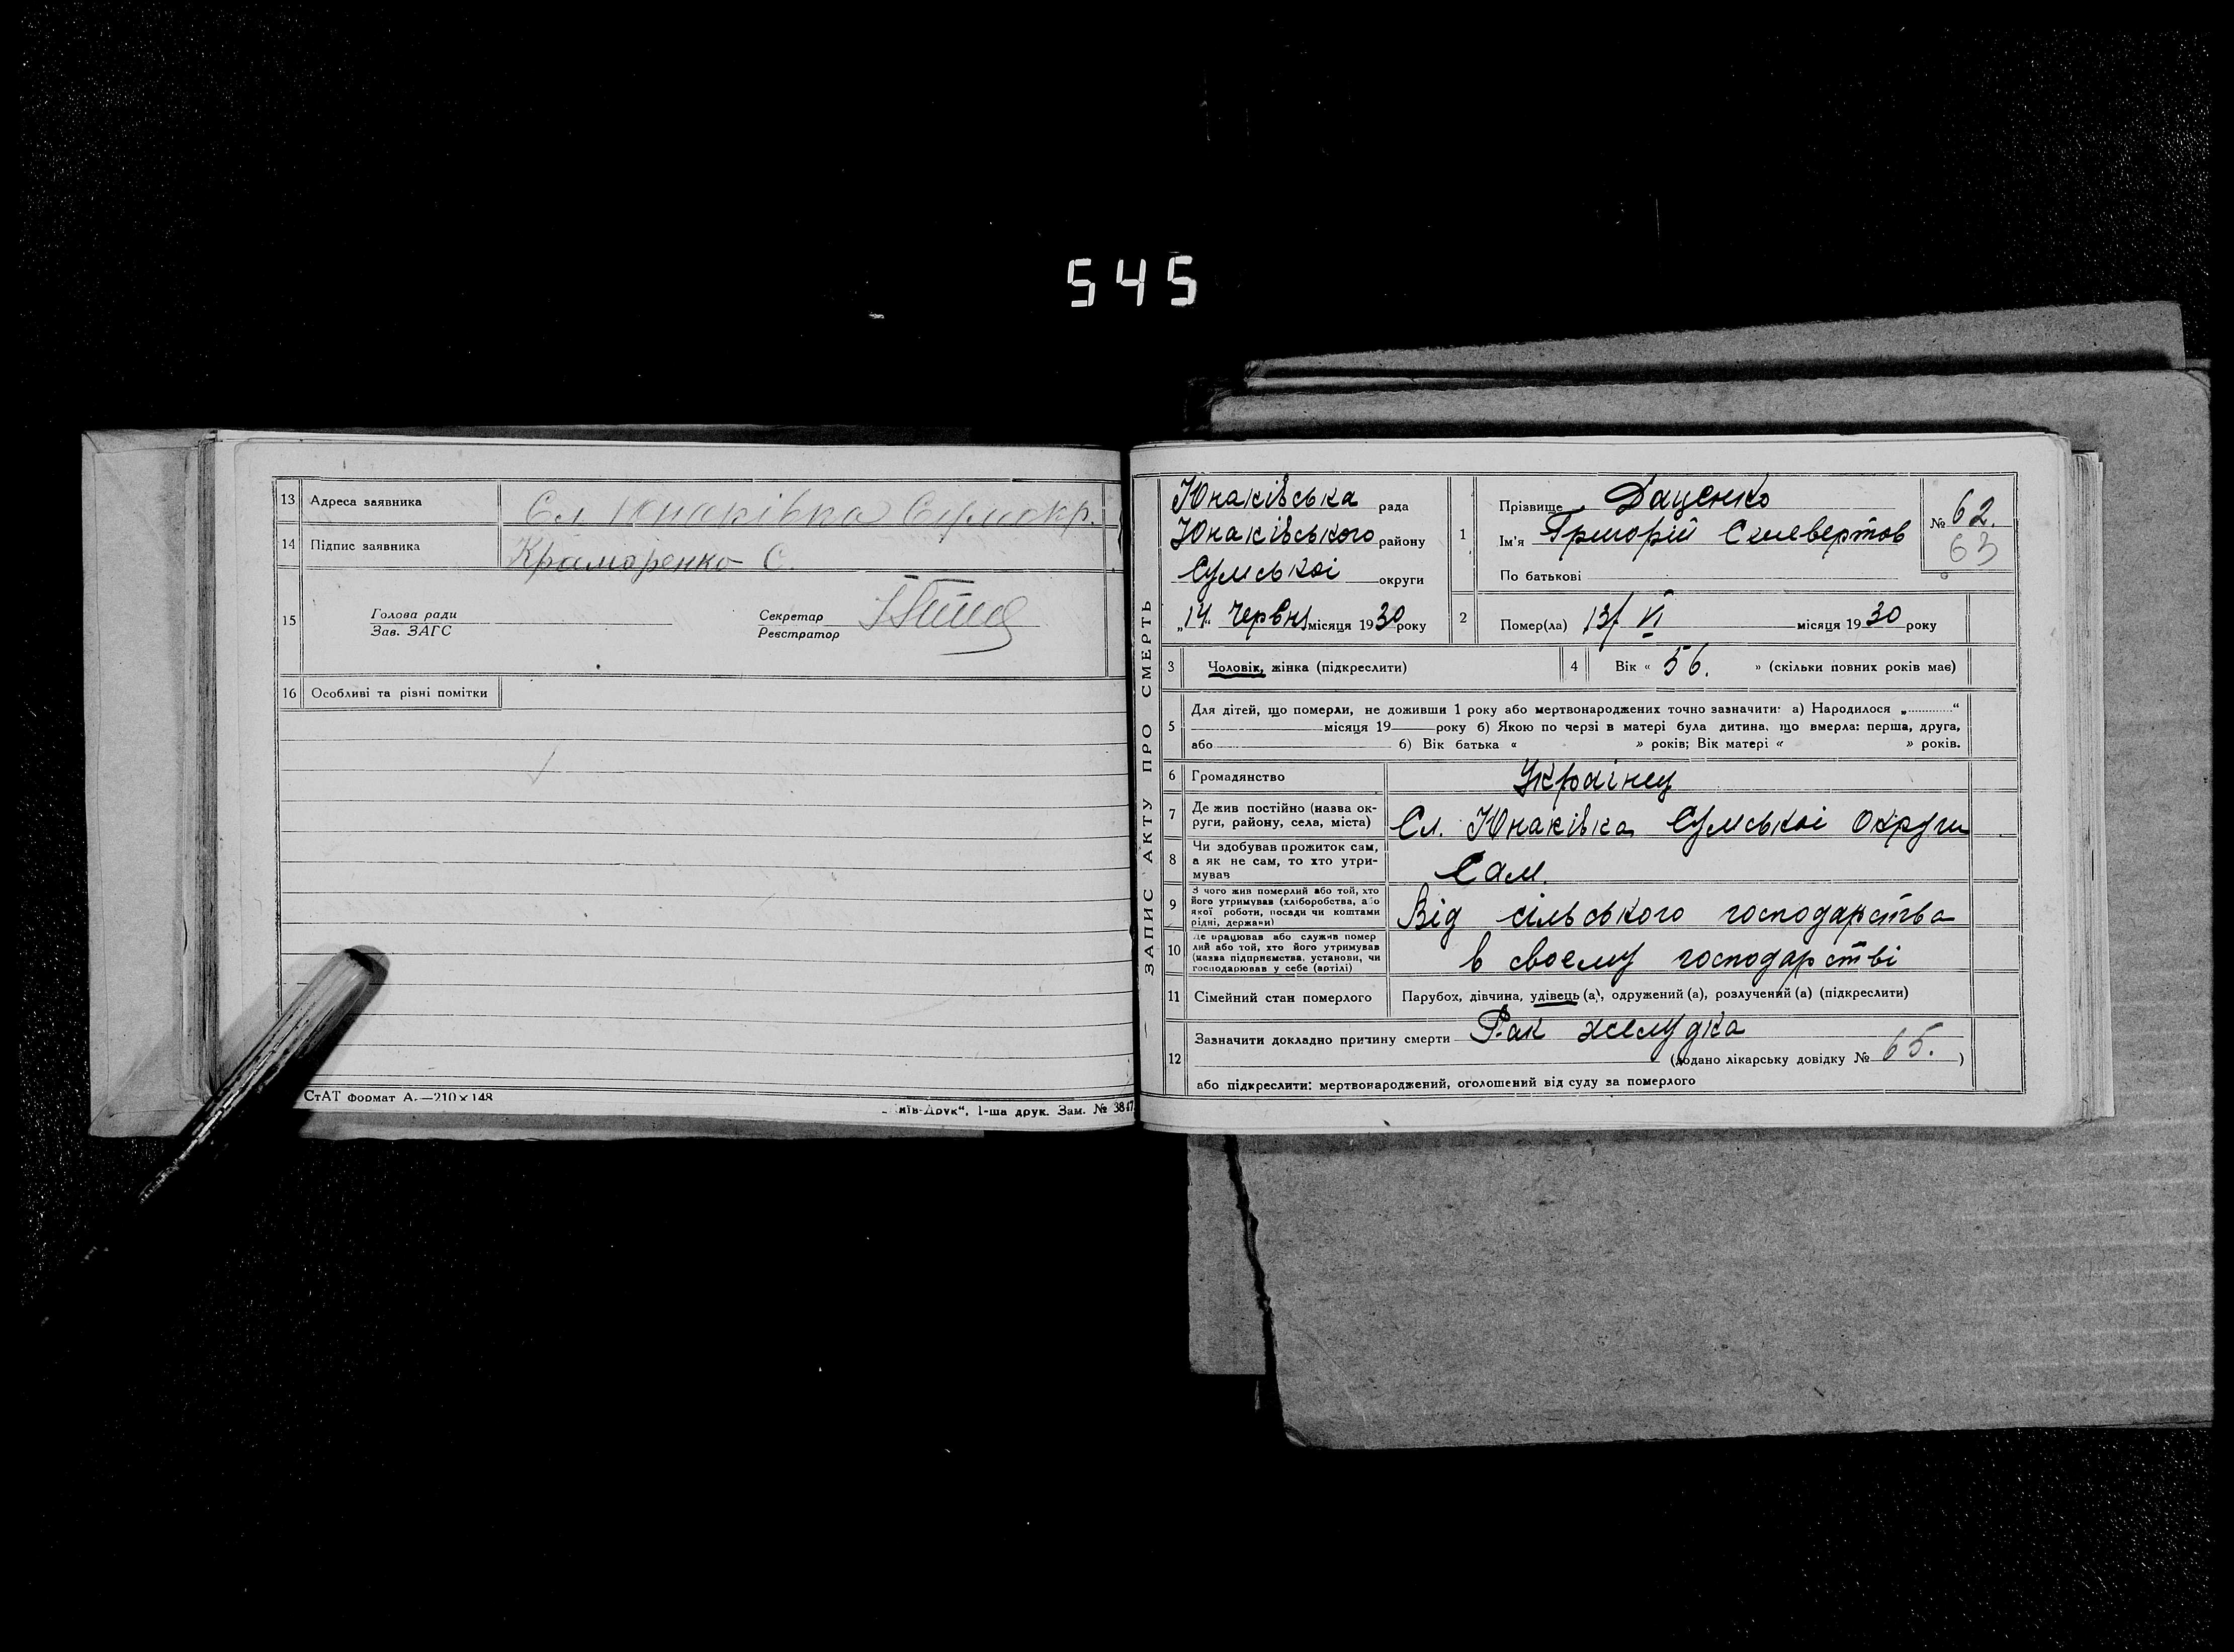 545
13 Адреса заявника Сл Юнаківка Сумокр.
14 Підпис заявника Крамаренко С.
15 Голова ради
Зав. ЗАГС
Секретар
Реєстратор
16 Особливі та різні помітки
СтАТ формат А —210×148
иїв-Друк“, 1-ша друк. Зам. № 3847
ЗАПИС АКТУ ПРО СМЕРТЬ
Юнаківська рада
Юнаківського району
Сумської округи
„14“ Червня місяця 1930 року
1 Прізвище Даценко
Ім'я Григорій Силевертов
По батькові
№ 62.
63
2 Помер(ла) 13/ VI місяця 1930 року
3 Чоловік, жінка (підкреслити)
4 Вік « 56. » (скільки повних років має)
5 Для дітей, що померли, не доживши 1 року або мертвонароджених точно зазначити: а) Народилося „ “
місяця 19 року б) Якою по черзі в матері була дитина, що вмерла: перша, друга,
або б) Вік батька « » років; Вік матері « » років.
6 Громадянство Українец
7 Де жив постійно (назва ок-
руги, району, села, міста) Сл. Юнаківка Сумської Округи
8 Чи здобував прожиток сам,
а як не сам, то хто утри-
мував Сам.
9 З чого жив померлий або той, хто
його утримував (хліборобства, або
якої роботи, посади чи коштами
рідні, держави) Від сільського господарства
10 Де працював або служив помер
лий або той, хто його утримував
(назва підприємства, установи, чи
господарював у себе (артілі) в своєму господарстві
11 Сімейний стан померлого Парубок, дівчина, удівець (а), одружений (а), розлучений (а) (підкреслити)
12 Зазначити докладно причину смерти Рак желудка
(додано лікарську довідку № 65. )
або підкреслити: мертвонароджений, оголошений від суду за померлого